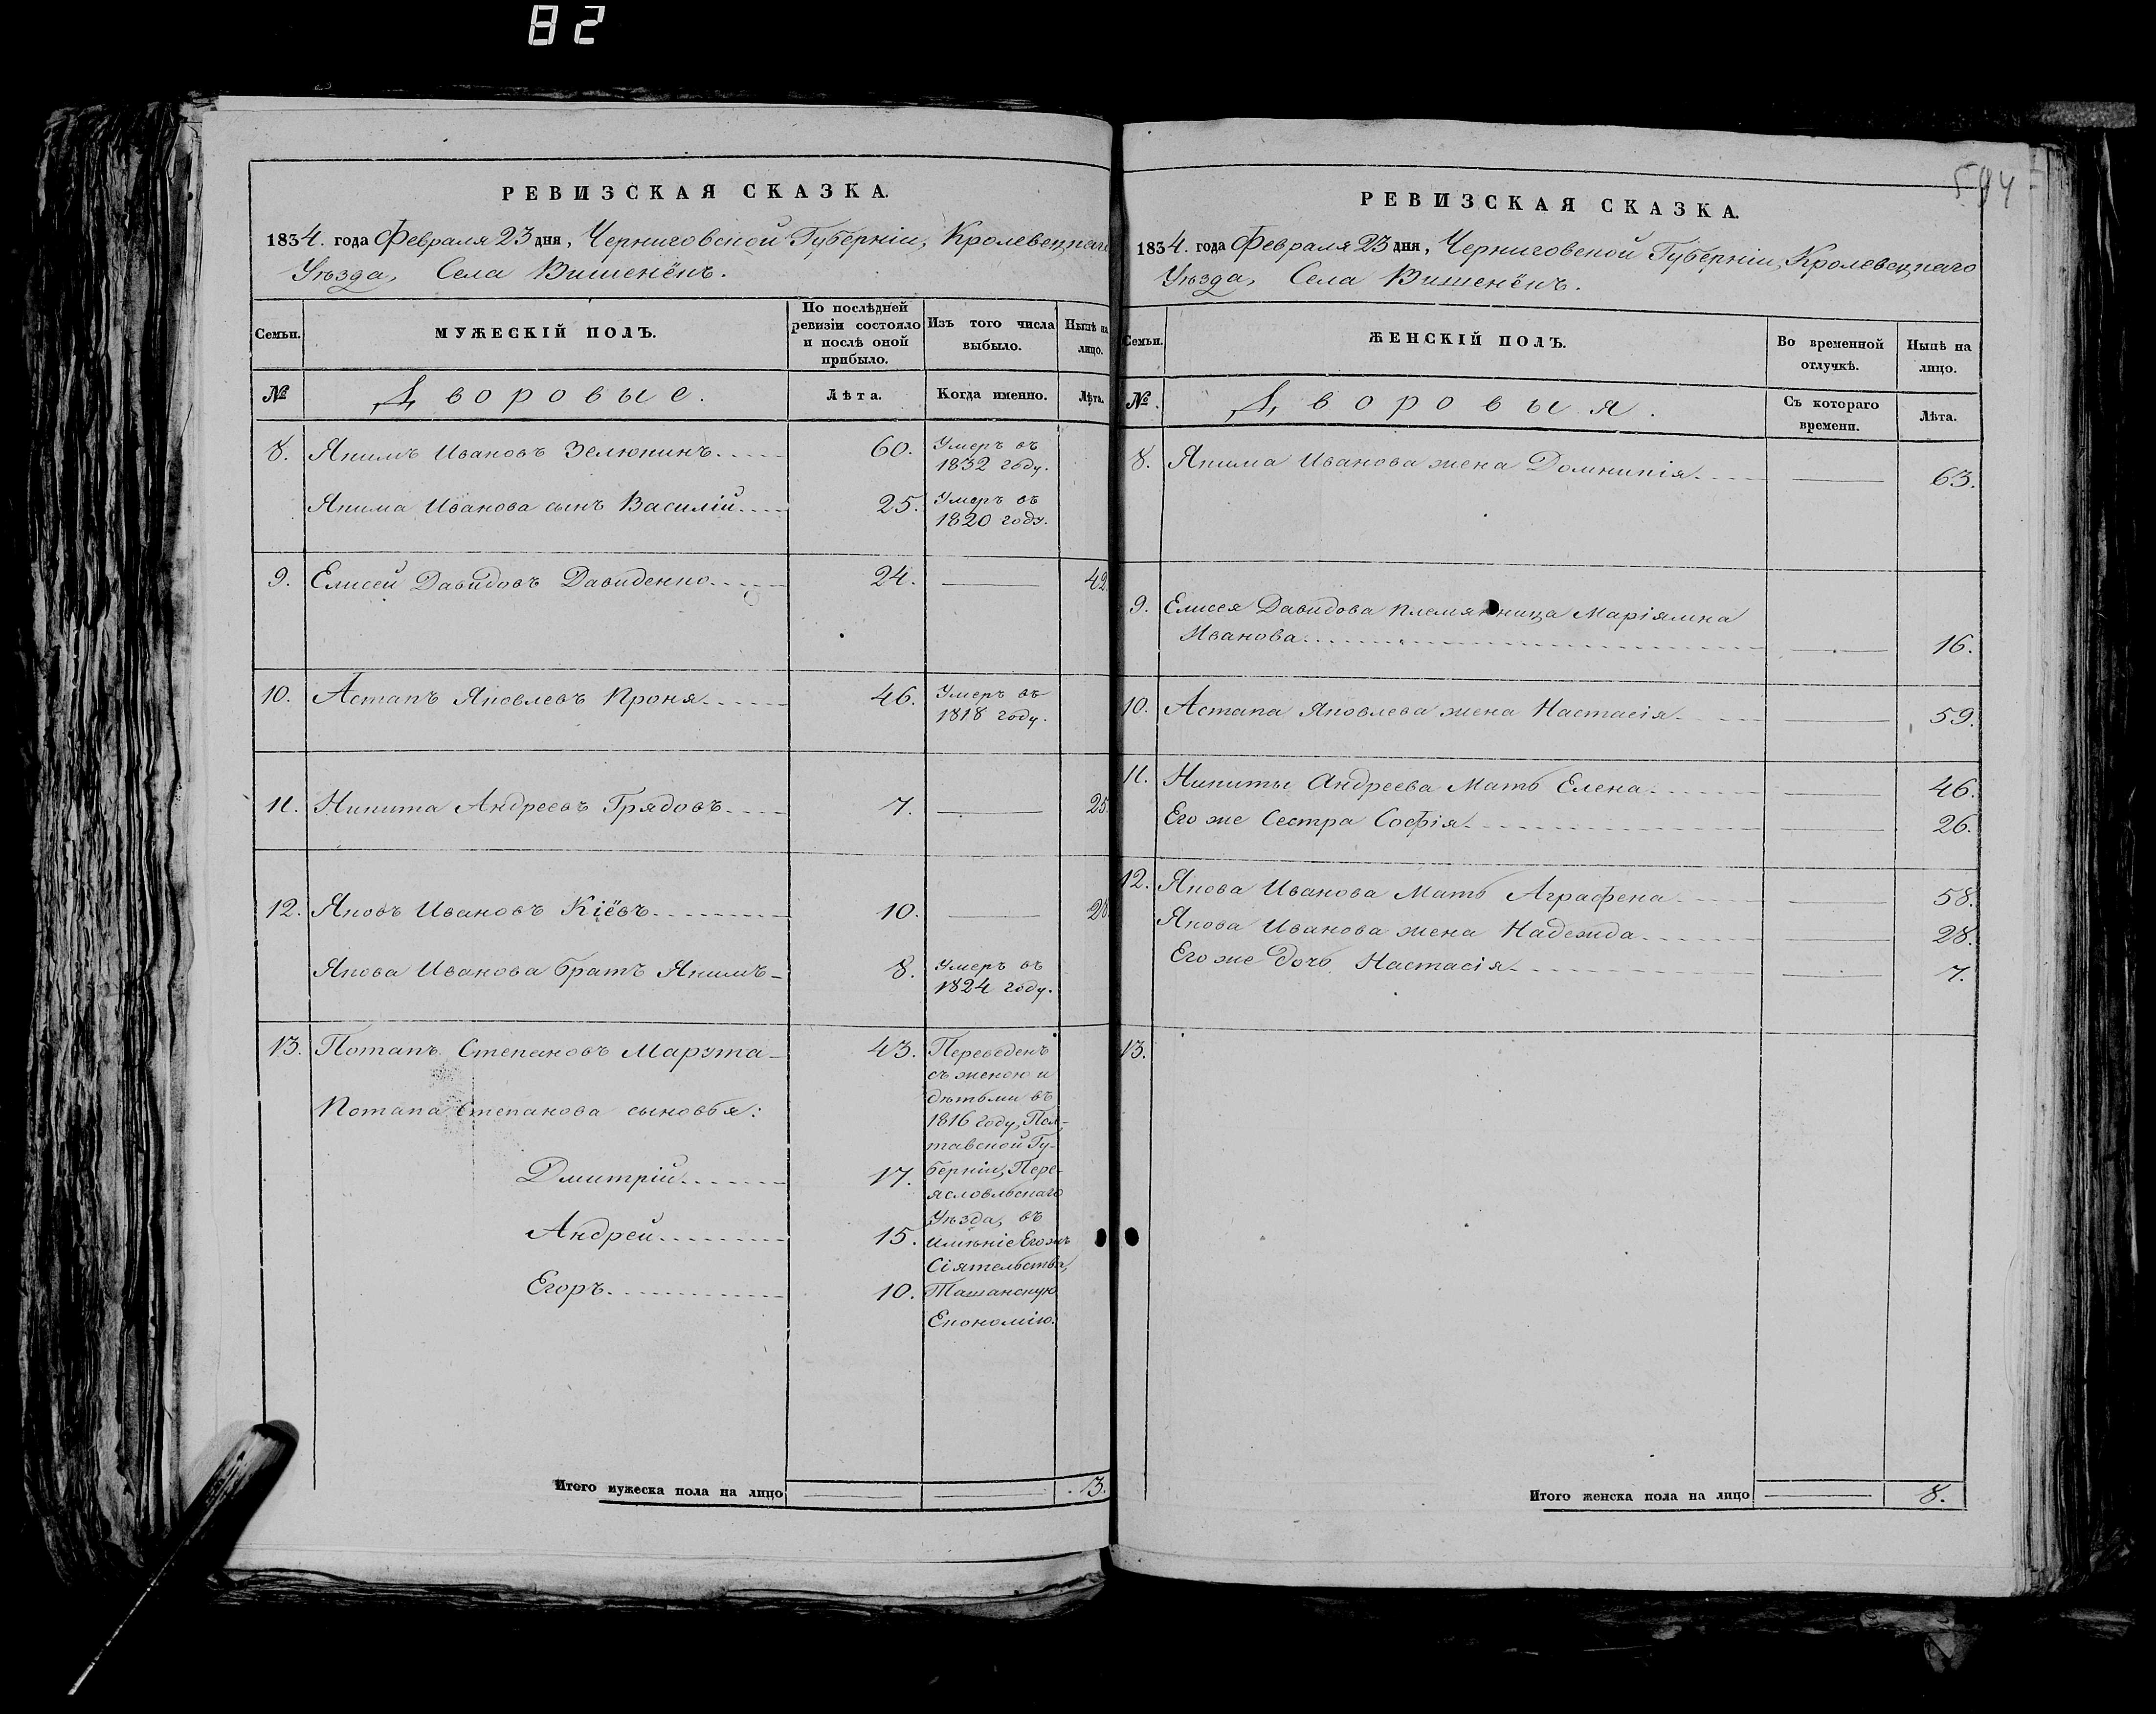 82
РЕВИЗСКАЯ СКАЗКА.
1834. года Февраля 23 дня, Черниговской Губерніи, Кролевецкаго
Уѣзда, Села Вишенёкъ.
Семьи.
МУЖЕСКІЙ ПОЛЪ.
По послѣдней ревизіи состояло и послѣ оной прибыло.
Изъ того числа выбыло.
Нынѣ на лицо.
№
Дворовые.
Лѣта.
Когда именно.
Лѣта.
8. Якимъ Ивановъ Зелюкинъ. 60. Умеръ въ 1832 году.
Якима Иванова сынъ Василій 25. Умеръ въ 1820 году.
9. Елисей Давидовъ Давиденко. 24. — 42.
10. Астапъ Яковлевъ Кроня. 46. Умеръ въ 1818 году.
11. Никита Андреевъ Грядовъ 7. — 25.
12. Яковъ Ивановъ Кіёвъ. 10. — 28.
Якова Иванова братъ Якимъ 8. Умеръ въ 1824 году.
13. Потапъ Степановъ Марута 43. Переведенъ
съ женою и
дѣтьми въ
1816 году, Пол-
тавской Гу-
Потапа Степанова сыновья:
Дмитрій 17. берніи, Пере-
ясловльскаго
Уѣзда, въ
Андрей 15. имѣніе Его жъ
Сіятельства,
Егоръ. 10. Ташанскую
Економію.
Итого мужеска пола на лицо — — 3.
594
РЕВИЗСКАЯ СКАЗКА.
1834. года Февраля 23 дня, Черниговской Губерніи, Кролевецкаго
Уѣзда, Села Вишенёкъ.
Семьи.
ЖЕНСКІЙ ПОЛЪ.
Во временной отлучкѣ.
Нынѣ на лицо.
№.
Дворовыя.
Съ котораго времени.
Лѣта.
8. Якима Иванова жена Домникія — 63.
9. Елисея Давидова племянница Маріямна
Иванова — 16.
10. Астапа Яковлева жена Настасія — 59.
11. Никиты Андреева Мать Елена — 46.
Его же Сестра Софія. — 26.
12. Якова Иванова Мать Аграфена — 58.
Якова Иванова жена Надежда — 28.
Его же дочь Настасія. — 7.
13.
Итого женска пола на лицо — 8.